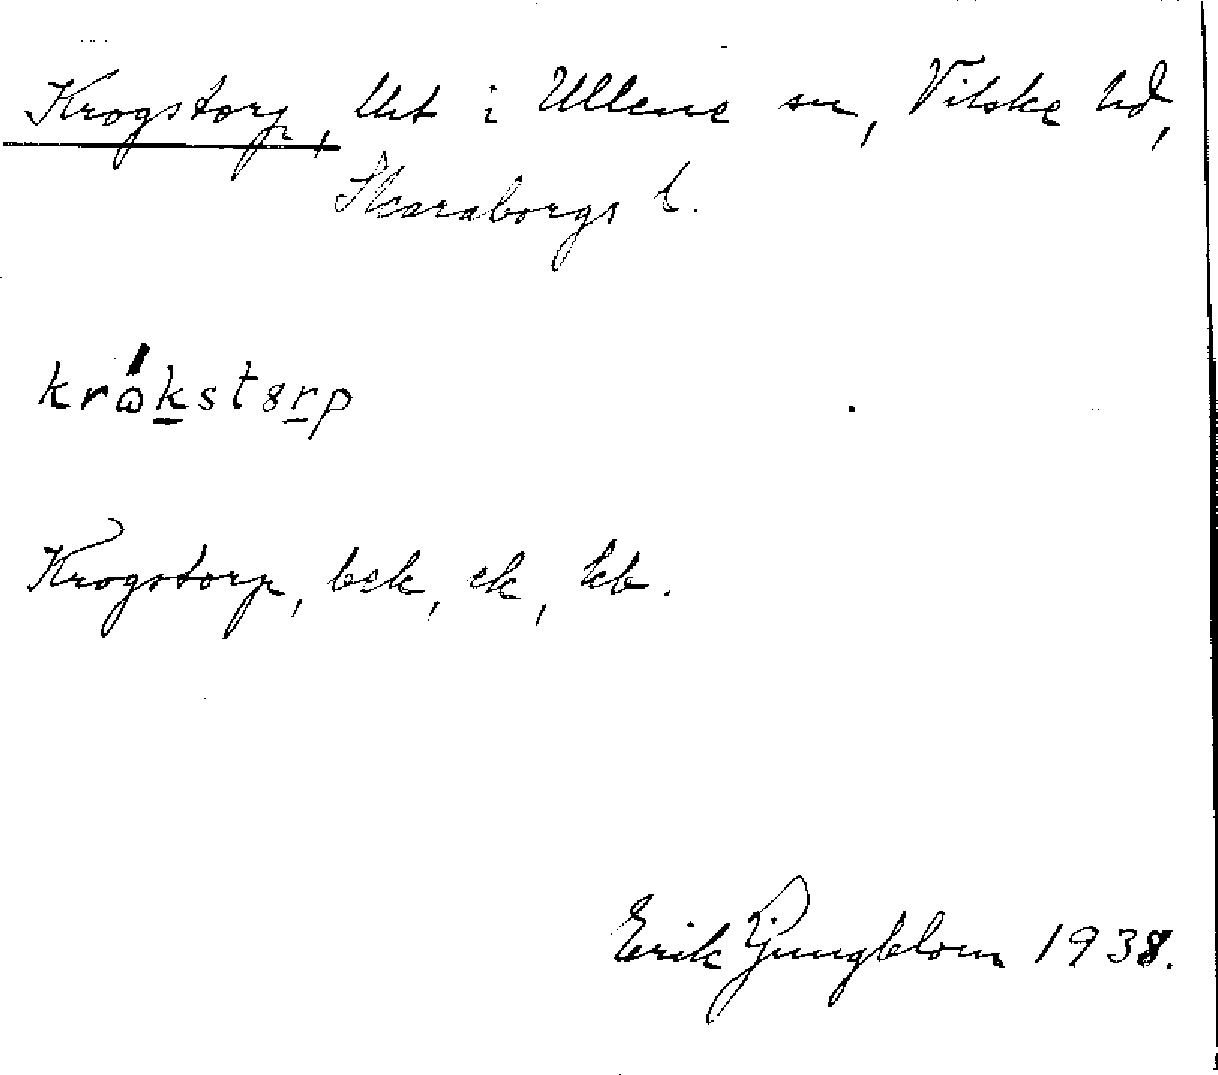 Krogstorp, llt i Ullene sn, Vilske hd,
Skaraborgs l.
krȧ̊kstȣrp
Krogstorp, bek, ek, kb.
Erik Ljungblom 1938.